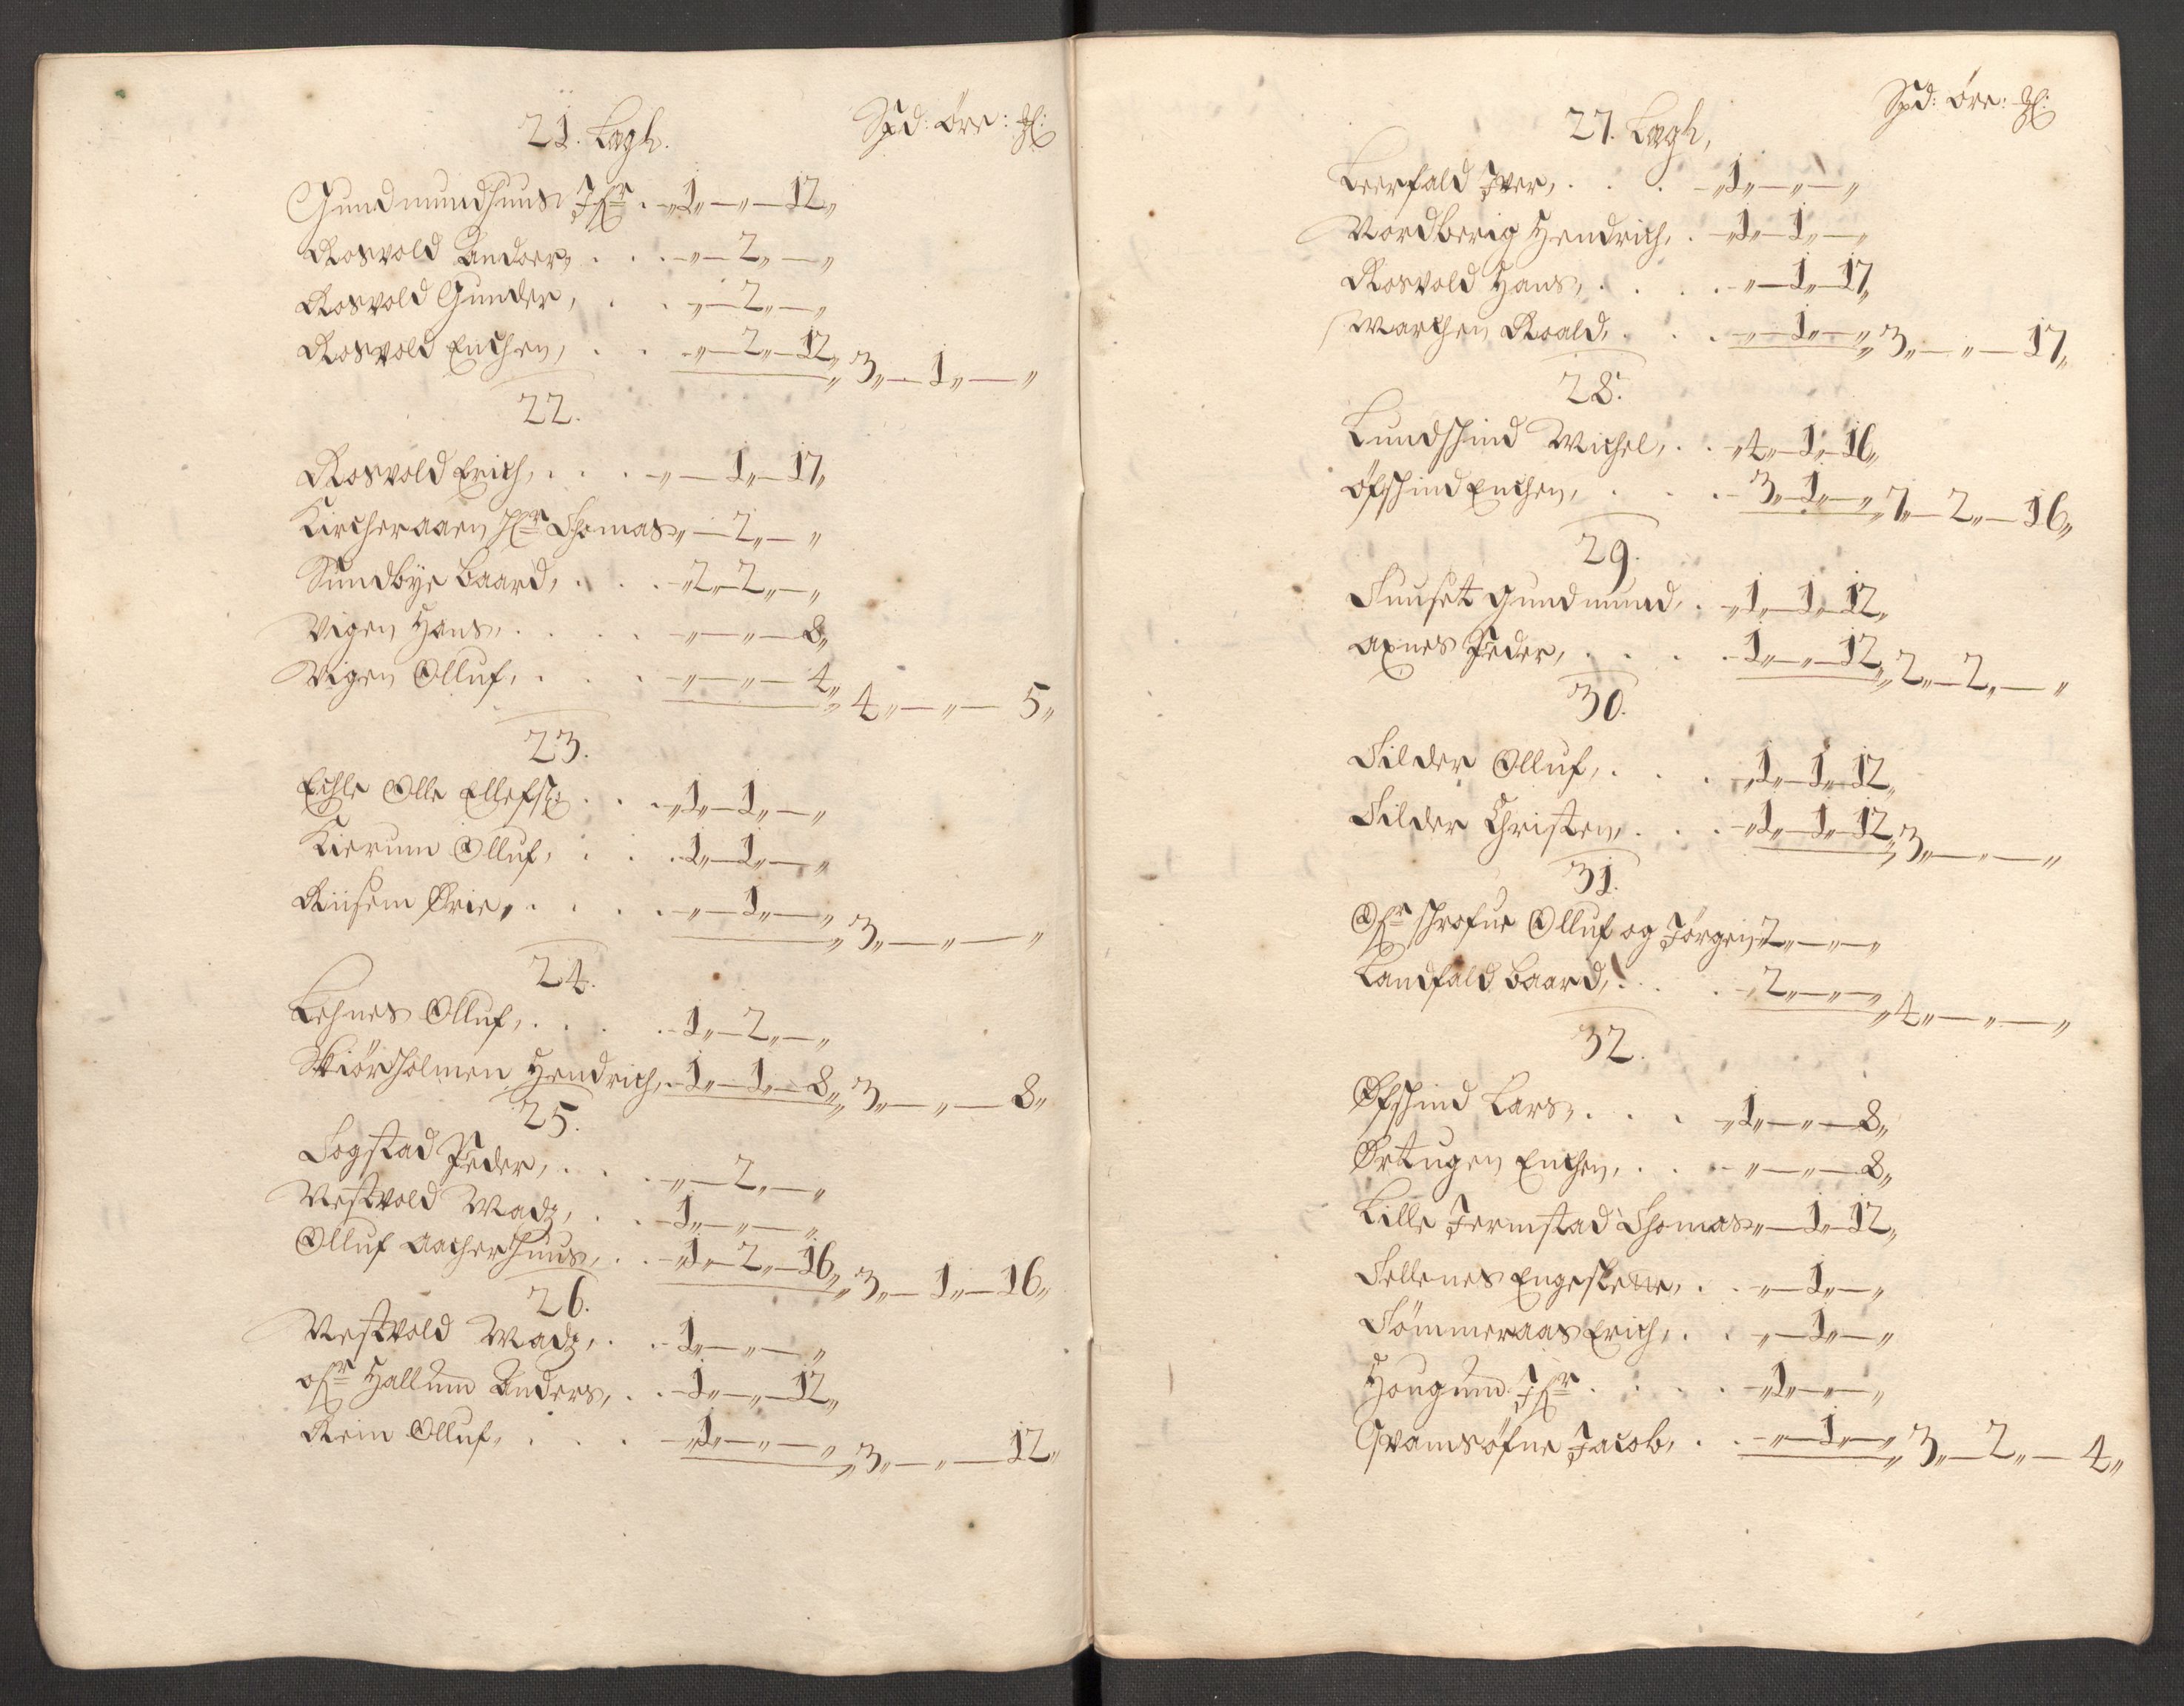 21. Lagh. Spd: Øre:
Gundmundhuus Ifr . „1„—„—12„
Rosvold Andors, . . . „—2„—„
Rosvold Gunder, . . „—2„—„
Rosvold Enchen, . . „—2„—12„ 3„—1„—„
22.
Rosvold Erich, . . . „—1„—17„
Kircheraaen Hr Thomas „—2„—„
Sundbye Baard, . . . „2„—2„—„
Vigen Hans, . . . . „—„—8„
Vigen Olluf, . . . „—„—4„ 4„—„—5„
23.
Echle Olle Ellefs: . . . „1„—1„—„
Kierum Olluf, . . . 1„—1„—„
Riisem Brie, . . . . „—1„—„ 3„—„—„
24.
Lehnes Olluf, . . . . 1„—2„—„
Skiörholmen Hendrich, . 1„—1„—8„ 3„—„—8„
25.
Togstad Peder, . . . „—2„—„
Nestvold Madz, . . 1„—„—„
Olluf Aacherhuus, . . „1„—2„—16„ 3„—1„—16„
26.
Nestvold Madz, . . 1„—„—„
ofr Hallum Anders, . . 1„—„—12„
Rein Olluf, . . . „1„—„—„ 3„—„—12„
27. Lagh, Spd: Øre:
Leerfald Iver, . . . „1„—„—„
Nordberig Hendrich, . „1„—1„—„
Rosvold Hans, . . . . „—1„—17„
Marchen Roald, . . . „—1„—„ 3„—„—17„
28.
Lundschind Michel, . . „4„—1„—16„
Öfschind Enchen, . . . 3„—1„—„ 7„—2„—16„
29.
Tuuset Gundmund, . „1„—1„—12„
Axnes Peder, . . . . 1„—„—12„ 2„—2„—„
30.
Tilder Olluf, . . . „1„—1„—12„
Tilder Christen, . . . „1„—1„—12„ 3„—„—„
31.
Ofr schrofue Olluf og Jörgen 2„—„—„
Landfald Baard, . . . „2„—„—„ 4„—„—„
32.
Öfschind Lars, . . . „1„—„—8„
Ørtugen Enchen, . . . „—„—8„
Lille Jermstad Thomas „—1„—12„
Tellenes Engeskene, . . „—1„—„
Tömmeraas Erich, . . „—1„—„
Hougum Ifr . . . . „1„—„—„
Qvamsöfne Jacob, . . „—1„—„ 3„—2„—4„